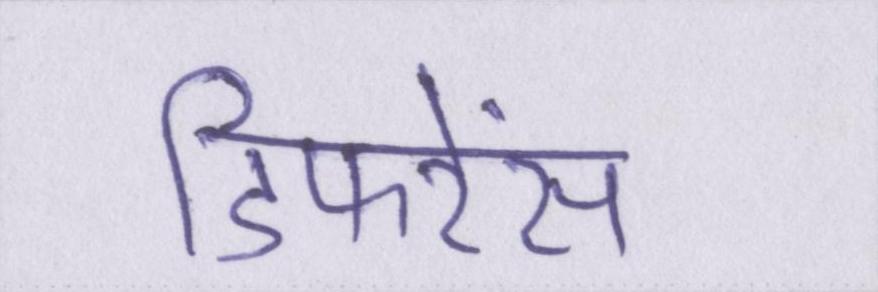 डिफरेंस